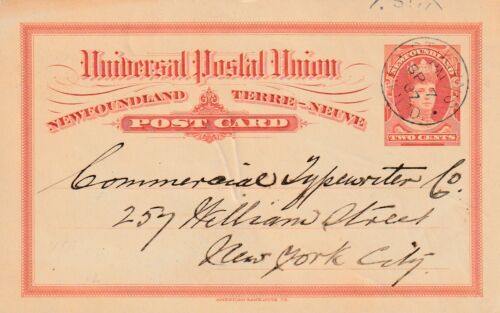 Universal Postal Union
NEWFOUNDLAND TERRE-NEUVE
POST CARD
NEWFOUNDLAND
TWO CENTS
SP 7
97
Commercial Typewriter Co.
257 William Street
New York City.
AMERICAN BANK NOTE CO.